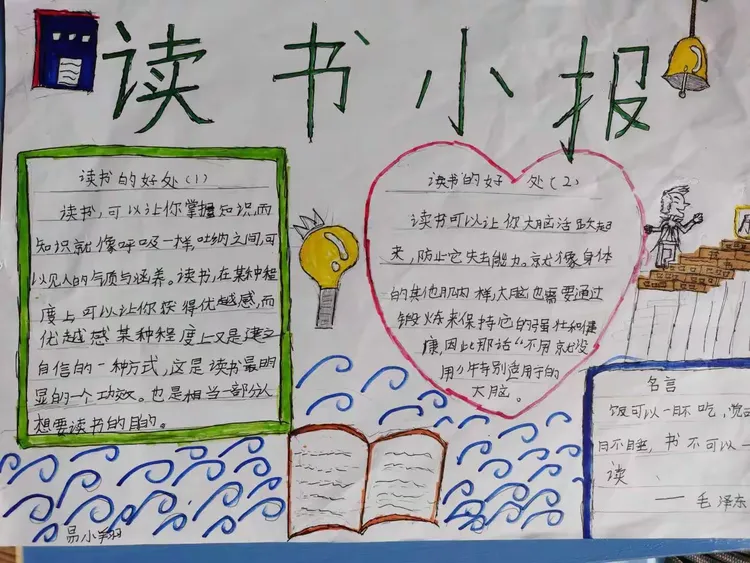 读书小报
读书的好处(1)
读书,可以让你掌握知识,而
知识就像呼吸一样,吐纳之间,可
以见人的气质与涵养。读书,在某种程
度上可以让你获得优越感,而
优越感某种程度上又是建立
自信的一种方式,这是读书最明
显的一个功效。也是相当一部分人
想要读书的目的。
读书的好处(2)
读书可以让你大脑活跃起
来,防止它失去能力。就像身体
的其他肌肉一样,大脑也需要通过
锻炼来保持它的强壮和健
康,因此那话“不用就没
用”特别适用于的
大脑。
名言
饭可以一日不吃,觉可
日不睡,书不可以一
读
——毛泽东
易小翔